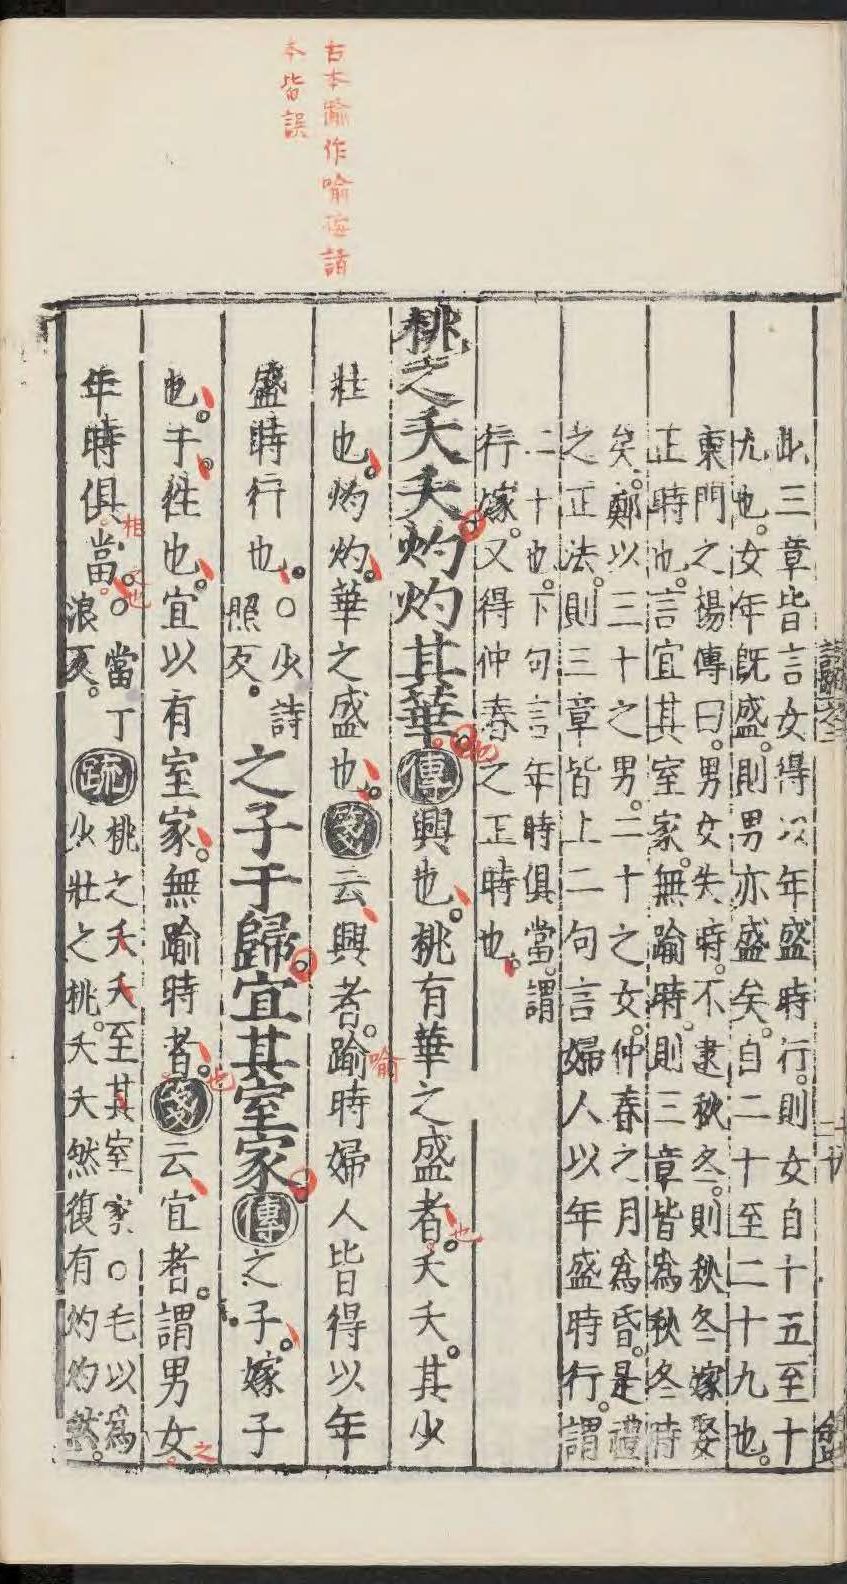 古本踰作喻
本皆誤
此三章皆言女得以年盛時行。則女自十五至十
九也。女年既盛。則男亦盛矣。自二十至二十九也。
東門之楊傳曰。男女失時。不逮秋冬。則秋冬嫁娶
正時也。言宜其室家。無踰時。則三章皆爲秋冬時
矣。鄭以三十之男。二十之女。仲春之月爲昏。是禮
之正法。則三章皆上二句言婦人以年盛時行。謂
二十也。下句言年時俱當。謂
行嫁。又得仲春之正時也。
桃之夭夭灼灼其華。傳興也。桃有華之盛者。夭夭。其少
也
壯也。灼灼。華之盛也。箋云興者。踰時婦人皆得以年
喻
盛時行也。○少詩
照反。
之子于歸。宜其室家。傳之子。嫁子
也。于。往也。宜以有室家。無踰時者。箋云宜者。謂男女
也
之
年時俱當。○當丁
浪反。
相
也
疏桃之夭夭至其室家○毛以爲
少壯之桃。夭夭然復有灼灼然。